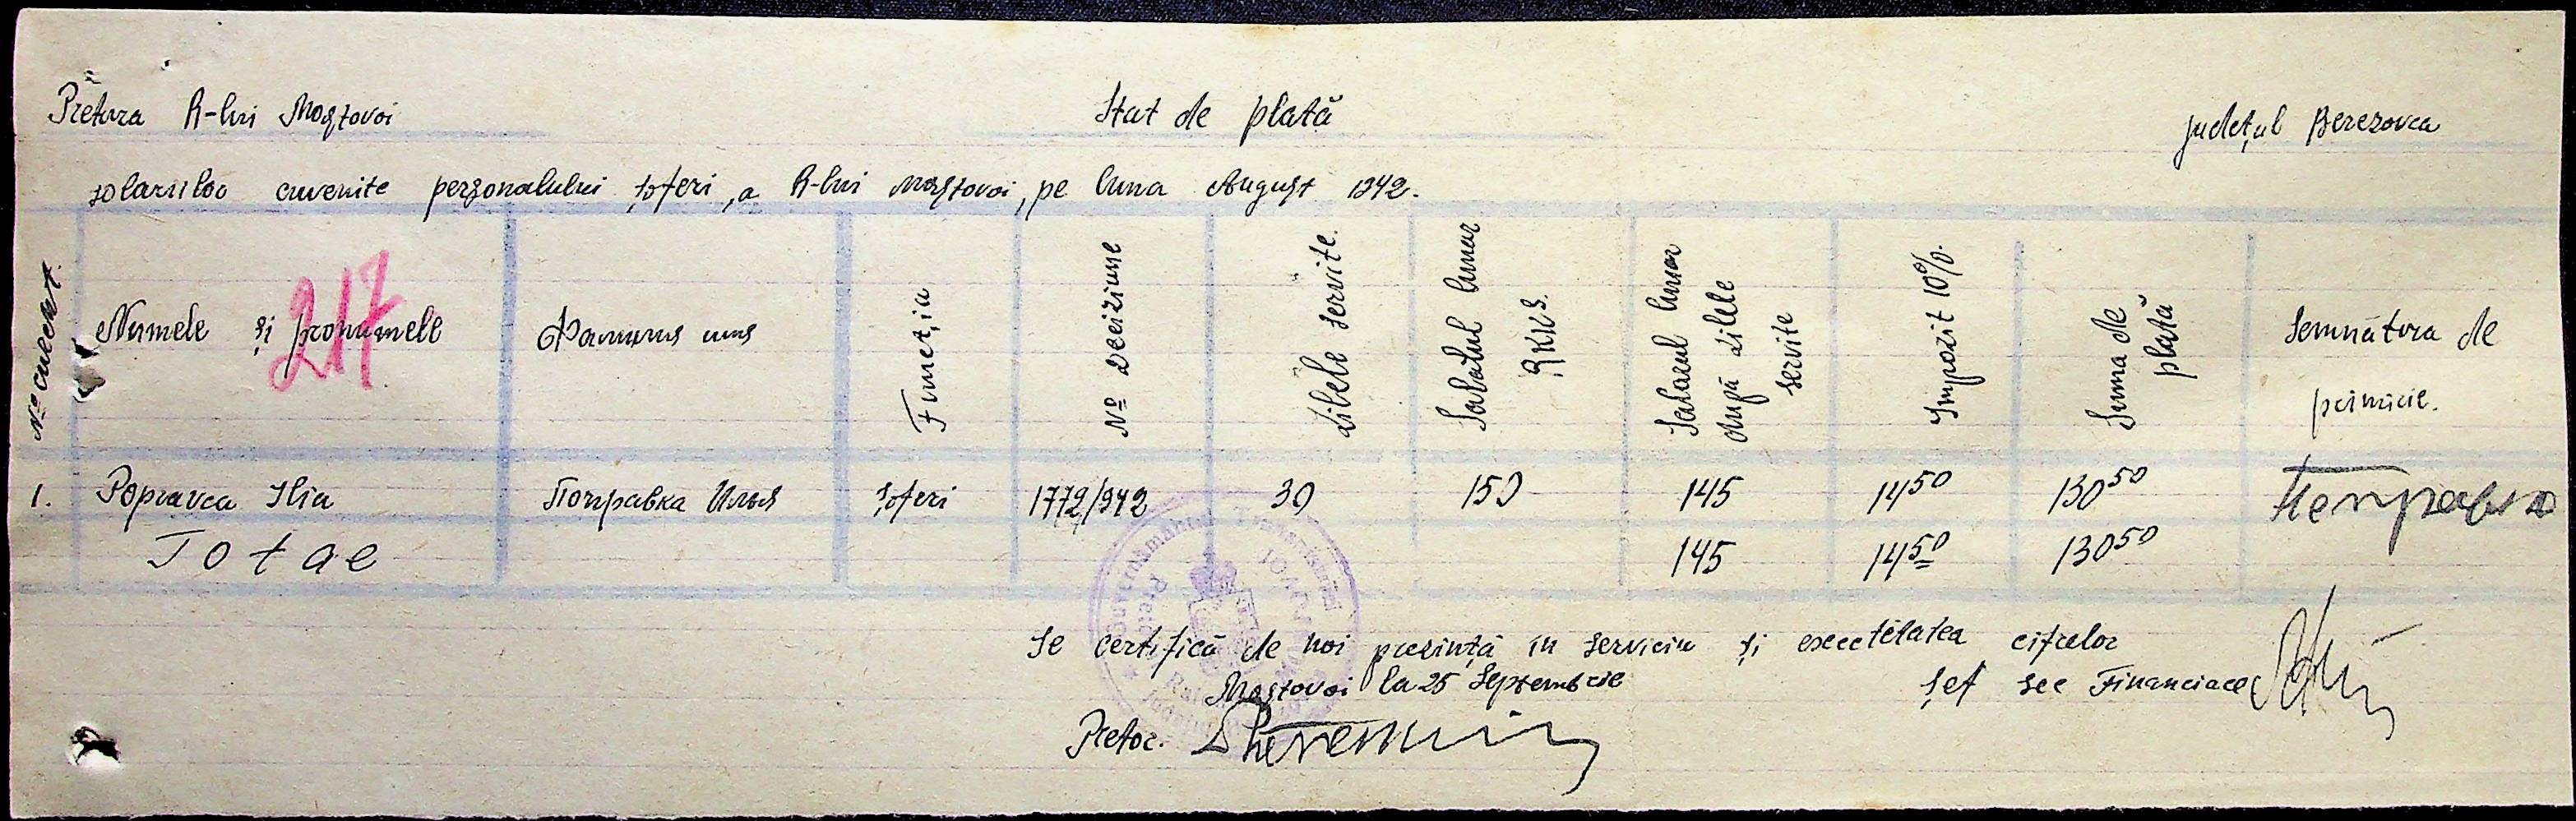 Pretura R-lui Mostovoi
Stat de plată
județul Berezovca
solariilor cuvenite personalului șoferi, a R-lui Mostovoi, pe luna August 1942.
№ curent.
Numele și pronumele
217
Фамилия имя
Funcția
№ Deciziune
Zilele servite.
Salatul lunar RKKS.
Salarul lunar după zilele servite
Impozit 10%.
Suma de plată
Semnătura de primire.
1. Popravca Ilia Поправка Илья șoferi 1772/942 30 150 145 14 50 130 50 Поправка
Total 145 14 50 130 50
Se certifică de noi prezință în serviciu și exectitatea cifrelor
Mostovoi la 25 Septembrie
Șef sec Financiare
Pretor.